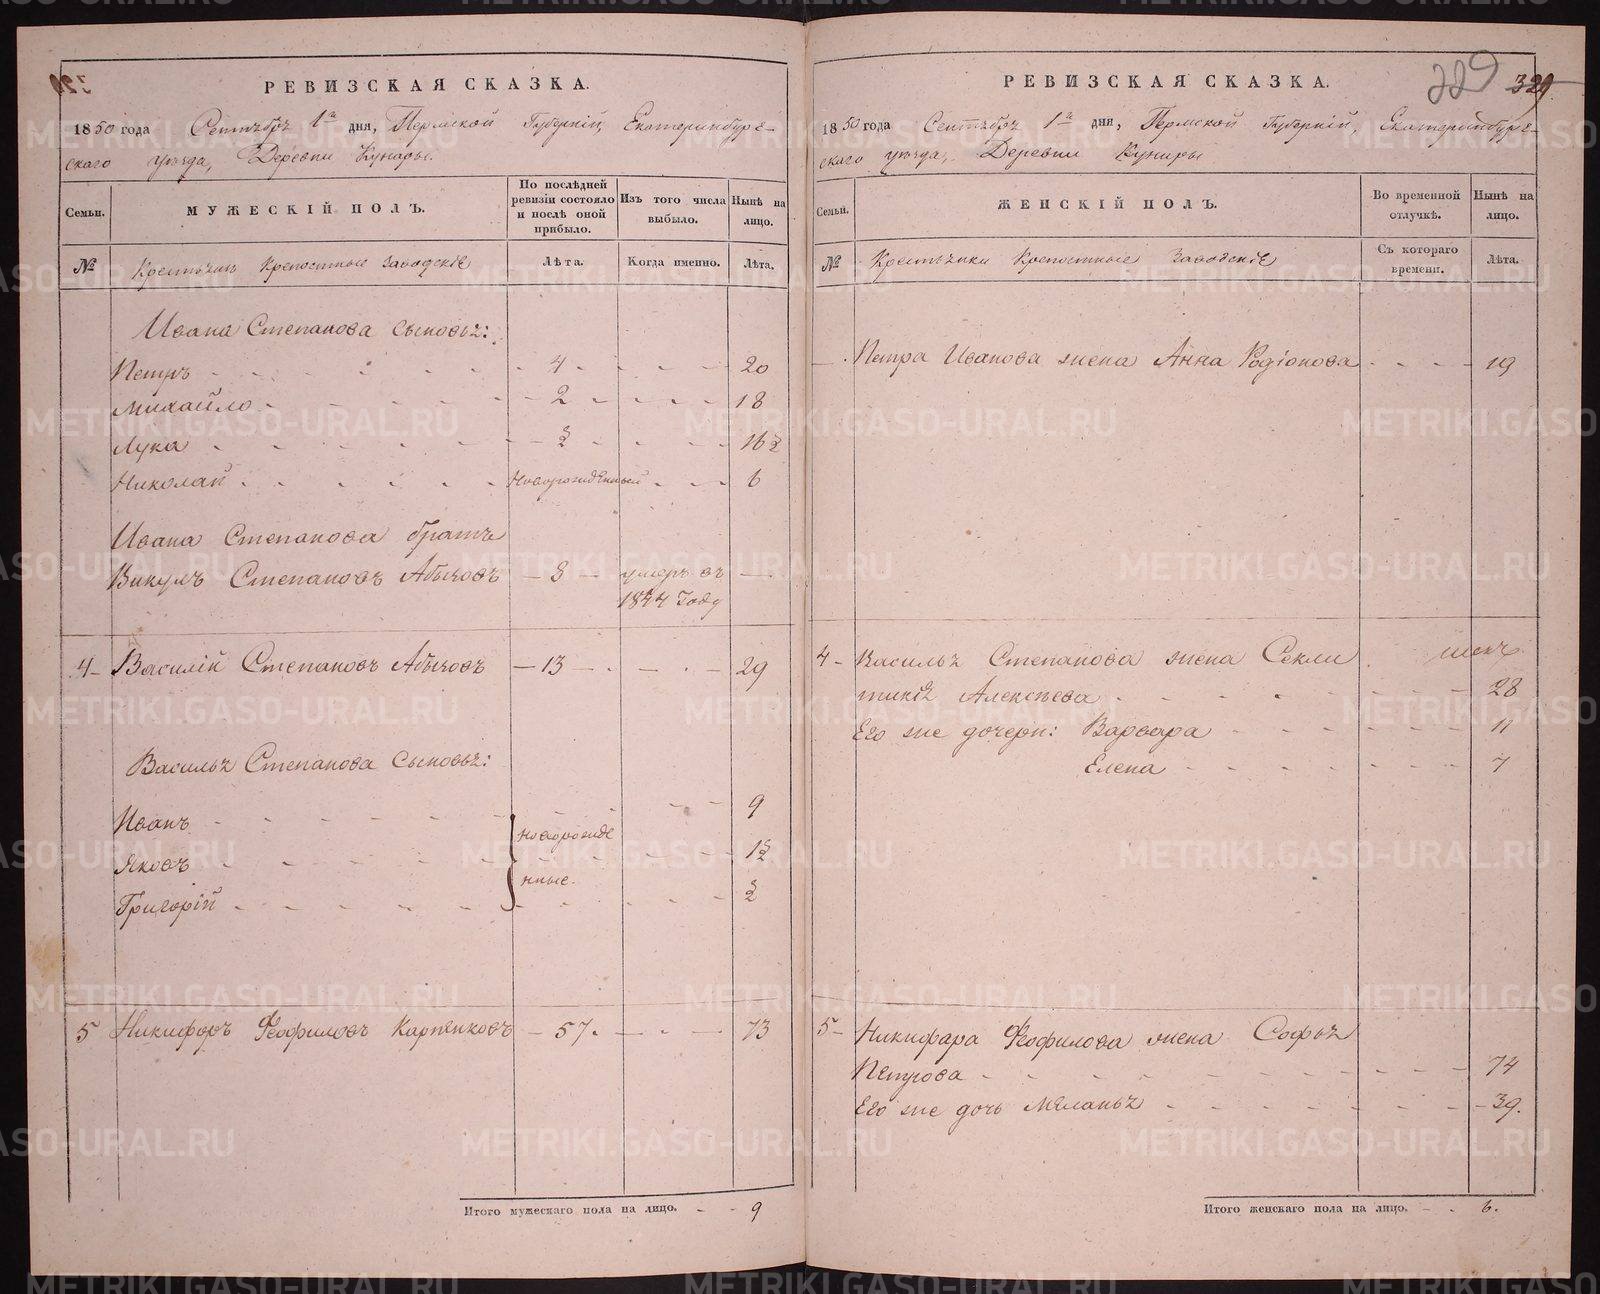 РЕВИЗСКАЯ СКАЗКА.
1850 года Сентября 1го дня, Пермской Губерніи, Екатеринбург-
скаго уѣзда, Деревни Кунары.
Семьи.
МУЖЕСКІЙ ПОЛЪ.
По послѣдней ревизіи состояло и послѣ оной прибыло.
Изъ того числа выбыло.
Нынѣ на лицо.
№ Крестьяне Крепостные Заводскіе
Лѣта. Когда именно. Лѣта.
Ивана Степанова сыновья:
Петръ - 4 - 20
Михайло - 2 - 18
Лука - ½ - 16½
Николай - Новорожденный - 6
Ивана Степанова братъ
Викулъ Степановъ Абызовъ - 3 - умеръ въ
1844 году
4 - Василій Степановъ Абызовъ - 13 - 29
Василья Степанова сыновья:
Иванъ - 9
новорожде
Яковъ - 1½
нные.
Григорій - ½
5 Никифоръ Феофиловъ Карпенковъ - 57 - 73
Итого мужескаго пола на лицо. - - 9
РЕВИЗСКАЯ СКАЗКА.
229 329
1850 года Сентября 1го дня, Пермской Губерніи, Екатеринбург-
скаго уѣзда, Деревни Кунары
Семьи.
ЖЕНСКІЙ ПОЛЪ.
Во временной отлучкѣ.
Нынѣ на лицо.
№ Крестьянки Крепостные Заводскіе
Съ котораго времени. Лѣта.
Петра Иванова жена Анна Родіонова - 19
4 - Василья Степанова жена Секли
тикія Алексѣева - 28
Его же дочери: Варвара - 11
Елена - 7
5 - Никифара Феофилова жена Софья
Петрова - 74
Его же дочь Меланья - 39.
Итого женскаго пола на лицо. - - 6.
METRIKI.GASO-URAL.RU